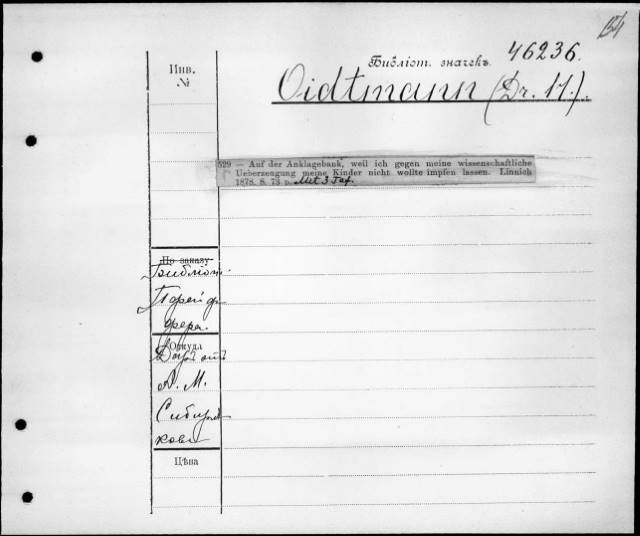 154
Библіот. значекъ 46236.
Инв.
№
Oidtmann (Dr. H.).
529 — Auf der Anklagebank, weil ich gegen meine wissenschaftliche
Ueberzeugung meine Kinder nicht wollte impfen lassen. Linnich
1878. 8. 73 p. Met 3 Taf.
По заказу
Библіот.
Пфейф-
фера.
Откуда
Даръ отъ
А. М.
Сибиря-
кова
Цѣна